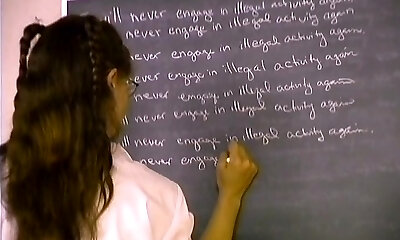 I'll never engage in illegal activity again.
never engage in illegal activity again
never engage in illegal activity again,
never engage in illegal activity again
never engage in illegal activity again
never engage in illegal activity again
never engage in illegal activity again.
never engage